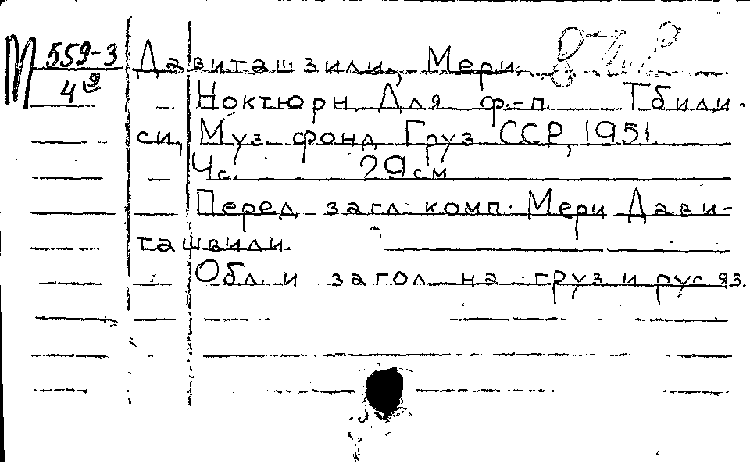 М 559-3
4º
Давиташвили, Мери.
Ноктюрн Для ф.-п. Тбили-
си, Муз. фонд Груз ССР, 1951.
4с. 29 см
Перед загл. комп. Мери Дави-
ташвили.
Обл. и загол на груз и рус яз.